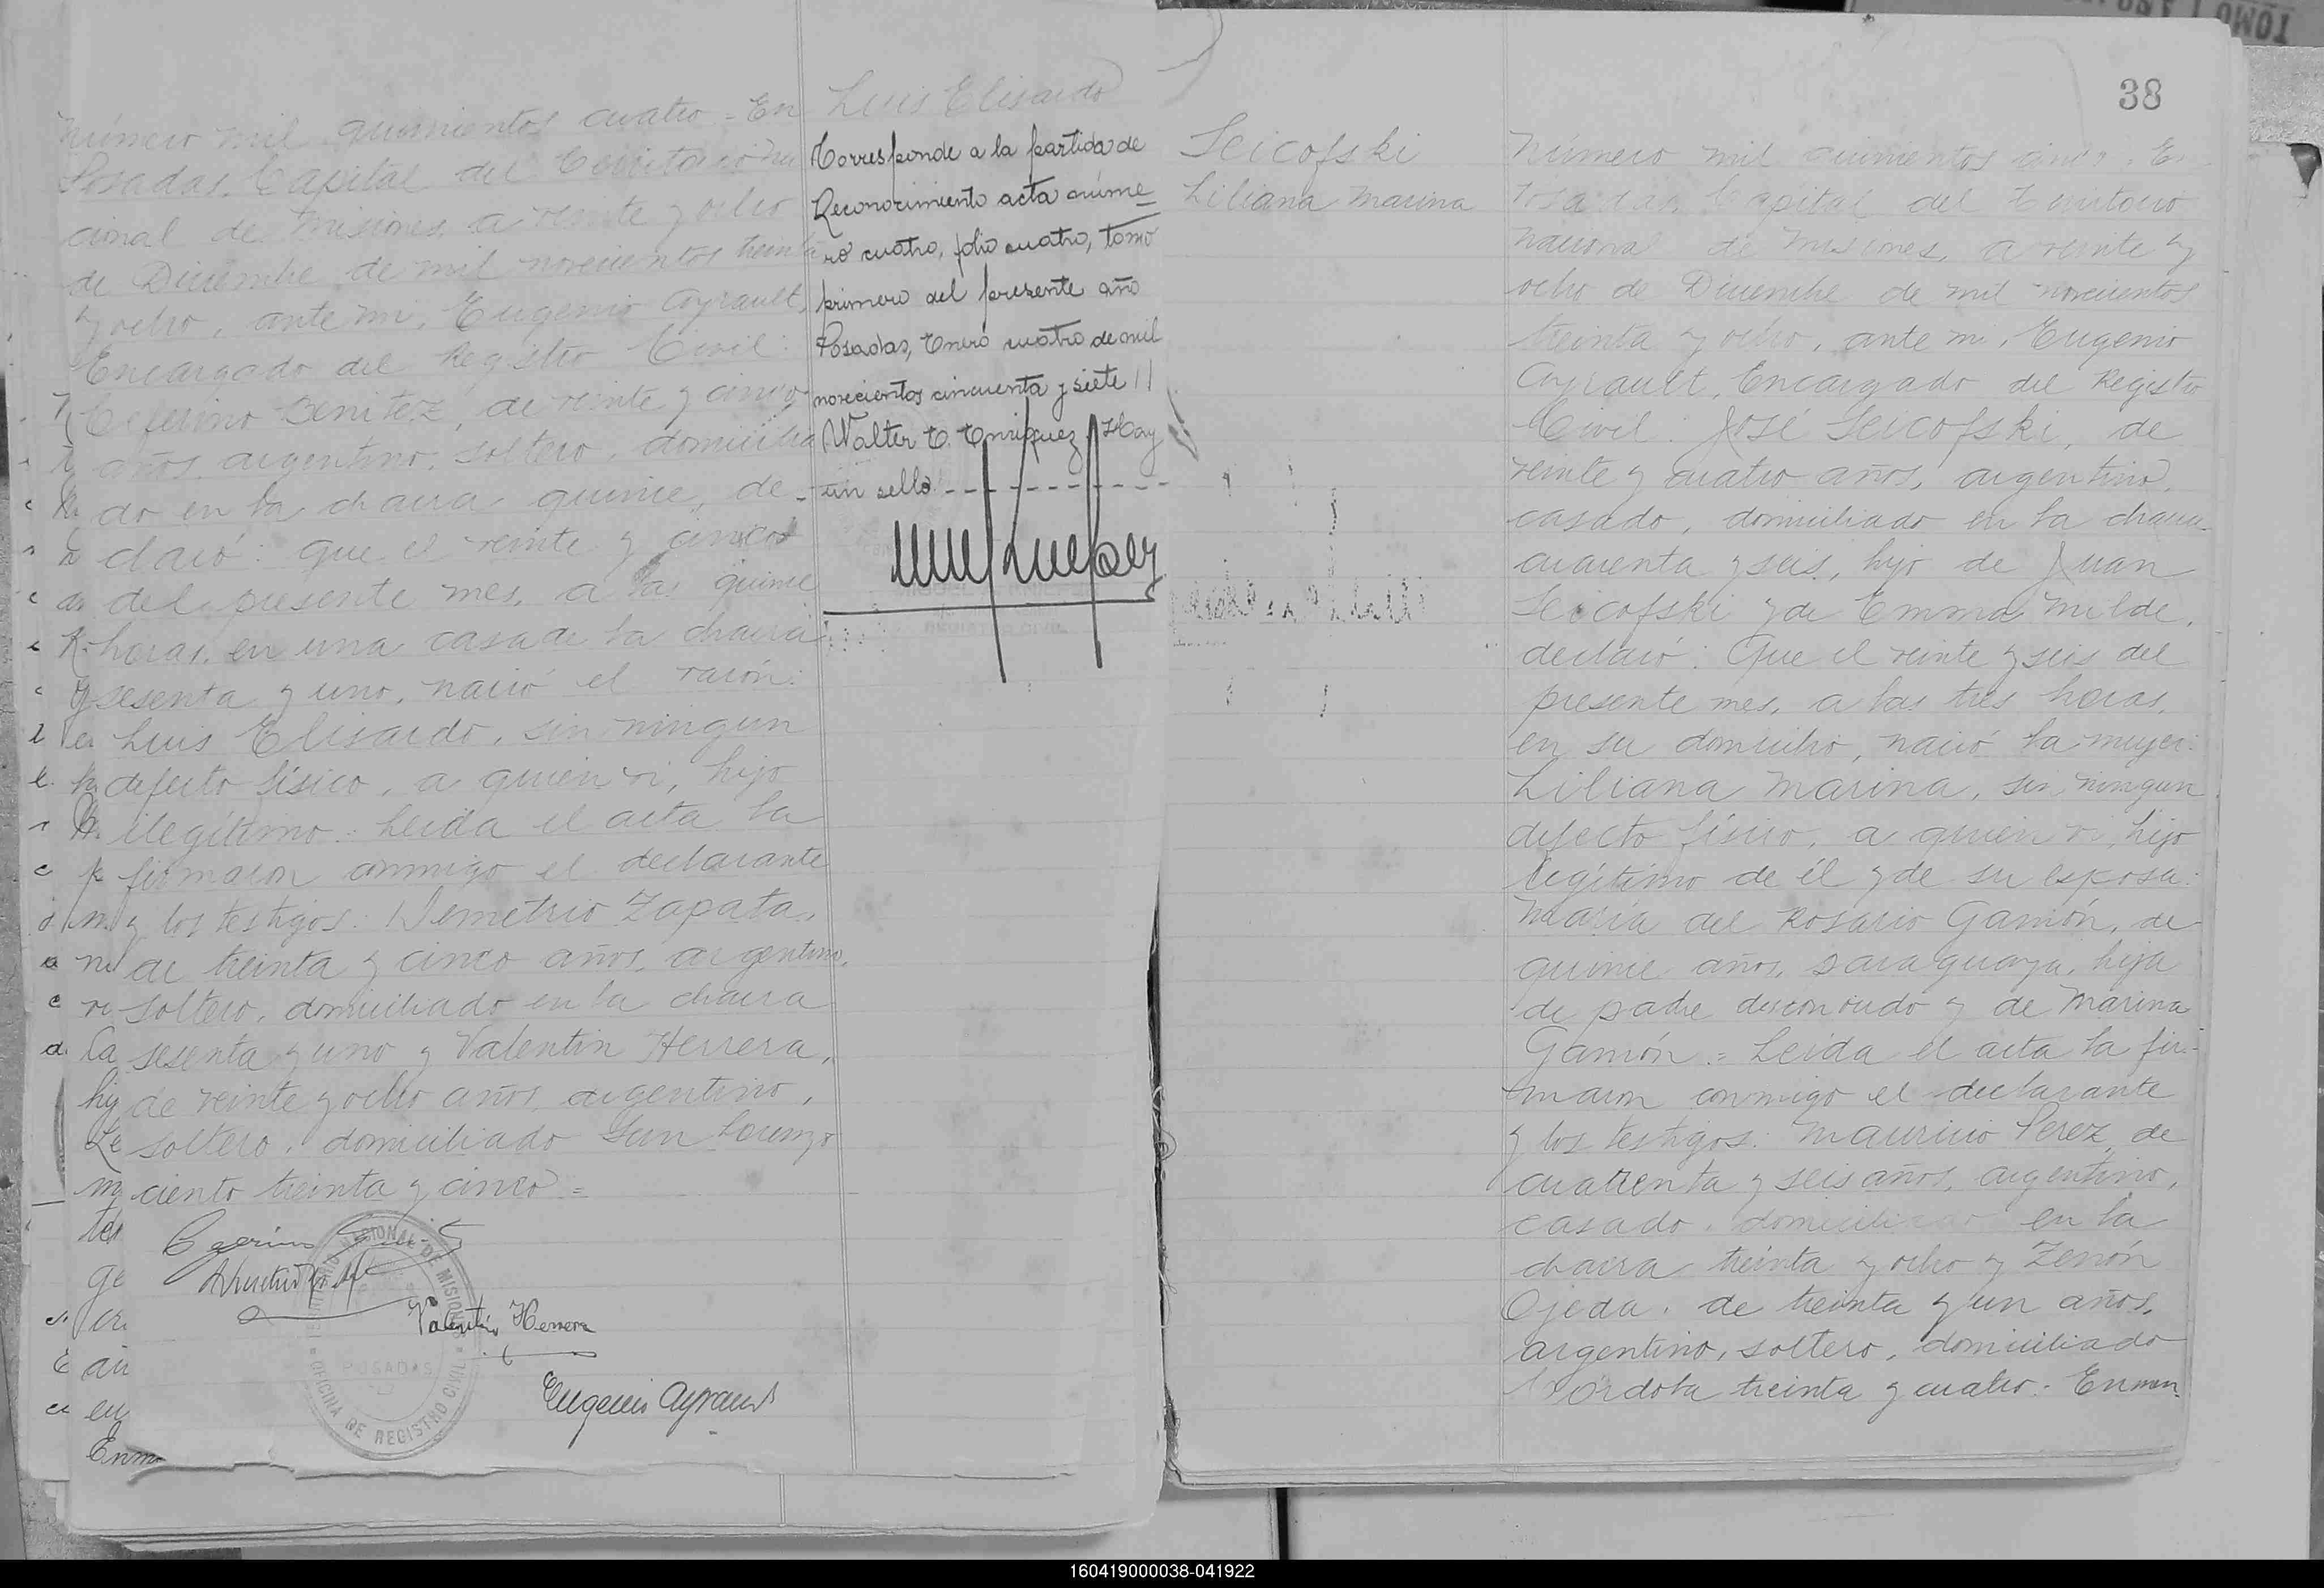 número mil quinientos cuatro = En
Posadas, Capital del Territorio Na
cional de Misiones, a veinte y ocho
de Diciembre de mil novecientos treinta
y ocho, ante mi, Eugenio Ayrault,
Encargado del Registro Civil:
Ceferino Benitez, de veinte y cinco
años, argentino, soltero, domicilia
do en la chacra quince, de-
claró: Que el veinte y cinco
del presente mes, a las quince
horas, en una casa de la chacra
sesenta y uno, nació el varón:
Luis Elisardo, sin ningun
defecto físico, a quien vi, hijo
ilegítimo. Leida el acta la
firmaron conmigo el declarante
y los testigos: Demetrio Zapata,
de treinta y cinco años, argentino,
soltero, domiciliado en la chacra
sesenta y uno y Valentin Herrera,
de veinte y ocho años, argentino,
soltero, domiciliado San Lorenzo
ciento treinta y cinco =
Valentin Herrera
Eugenio Ayrault
TERRITORIO NACIONAL DE MISIONES
POSADAS
OFICINA DE REGISTRO CIVIL
Luis Elisardo
Corresponde a la partida de
Reconocimiento acta núme=
ro cuatro, folio cuatro, tomo
primero del presente año
Posadas, Enero cuatro de mil
novecientos cincuenta y siete //
Walter E. Enriquez. Hay
un sello. - - - - - - - - - -
38
Seicofski
Liliana Marina
número mil quinientos cinco. En
Posadas, Capital del Territorio
nacional de Misiones, a veinte y
ocho de Diciembre de mil novecientos
treinta y ocho, ante mi, Eugenio
Ayrault, Encargado del Registro
Civil: José Seicofski, de
veinte y cuatro años, argentino,
casado, domiciliado en la chacra
cuarenta y seis, hijo de Juan
Seicofski y de Emma Milde,
declaró: Que el veinte y seis del
presente mes, a las tres horas,
en su domicilio, nació la mujer:
Liliana Marina, sin ningun
defecto físico, a quien vi, hijo
legítimo de él y de su esposa:
María del Rosario Gamón, de
quince años, paraguaya, hija
de padre desconocido y de Marina
Gamón = Leida el acta la fir-
maron conmigo el declarante
y los testigos: Mauricio Perez, de
cuarenta y seis años, argentino,
casado, domiciliado en la
chacra treinta y ocho y Zenón
Ojeda, de treinta y un años,
argentino, soltero, domiciliado
Córdoba treinta y cuatro. Enmen-
160419000038-041922